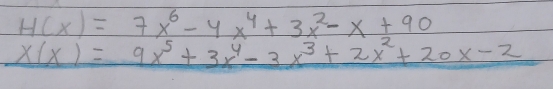 H(x) = 7x⁶ - 4x⁴ + 3x² - x + 90
X(x) = 9x⁵ + 3x⁴ - 3x³ + 2x² + 20x - 2